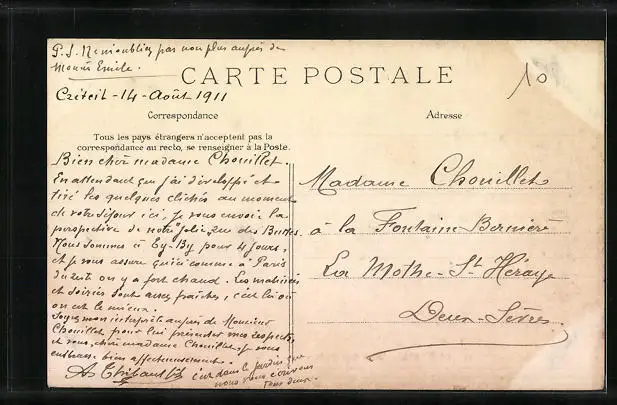 P.S. N'em'oubliez pas non plus auprès de
Mons Emile.
CARTE POSTALE
10
Créteil - 14 - Août 1911
Correspondance
Adresse
Tous les pays étrangers n'acceptent pas la
correspondance au recto, se renseigner à la Poste.
Bien chère madame Chouillet.
En attendant que j'ai développé et
tiré les quelques clichés au moment
de votre séjour ici, je vous envoie la
perspective de notre jolie rue des Buttes.
Nous sommes à By-By pour 4 jours,
et je vous assure qu'ici comme à Paris
on y a fort chaud. Les matinées
et soirées sont assez fraîches, c'est là où
on est le mieux.
Soyez mon interprète auprès de Monsieur
Chouillet pour lui présenter mes respects,
et vous, chère madame Chouillet, je vous
embrasse bien affectueusement.
A Thibault fils
c'est dans le jardin que
nous vous écrivons
tous deux.
Madame Chouillet
à la Fontaine-Bernière
La Mothe-St-Héraye
Deux-Sèvres